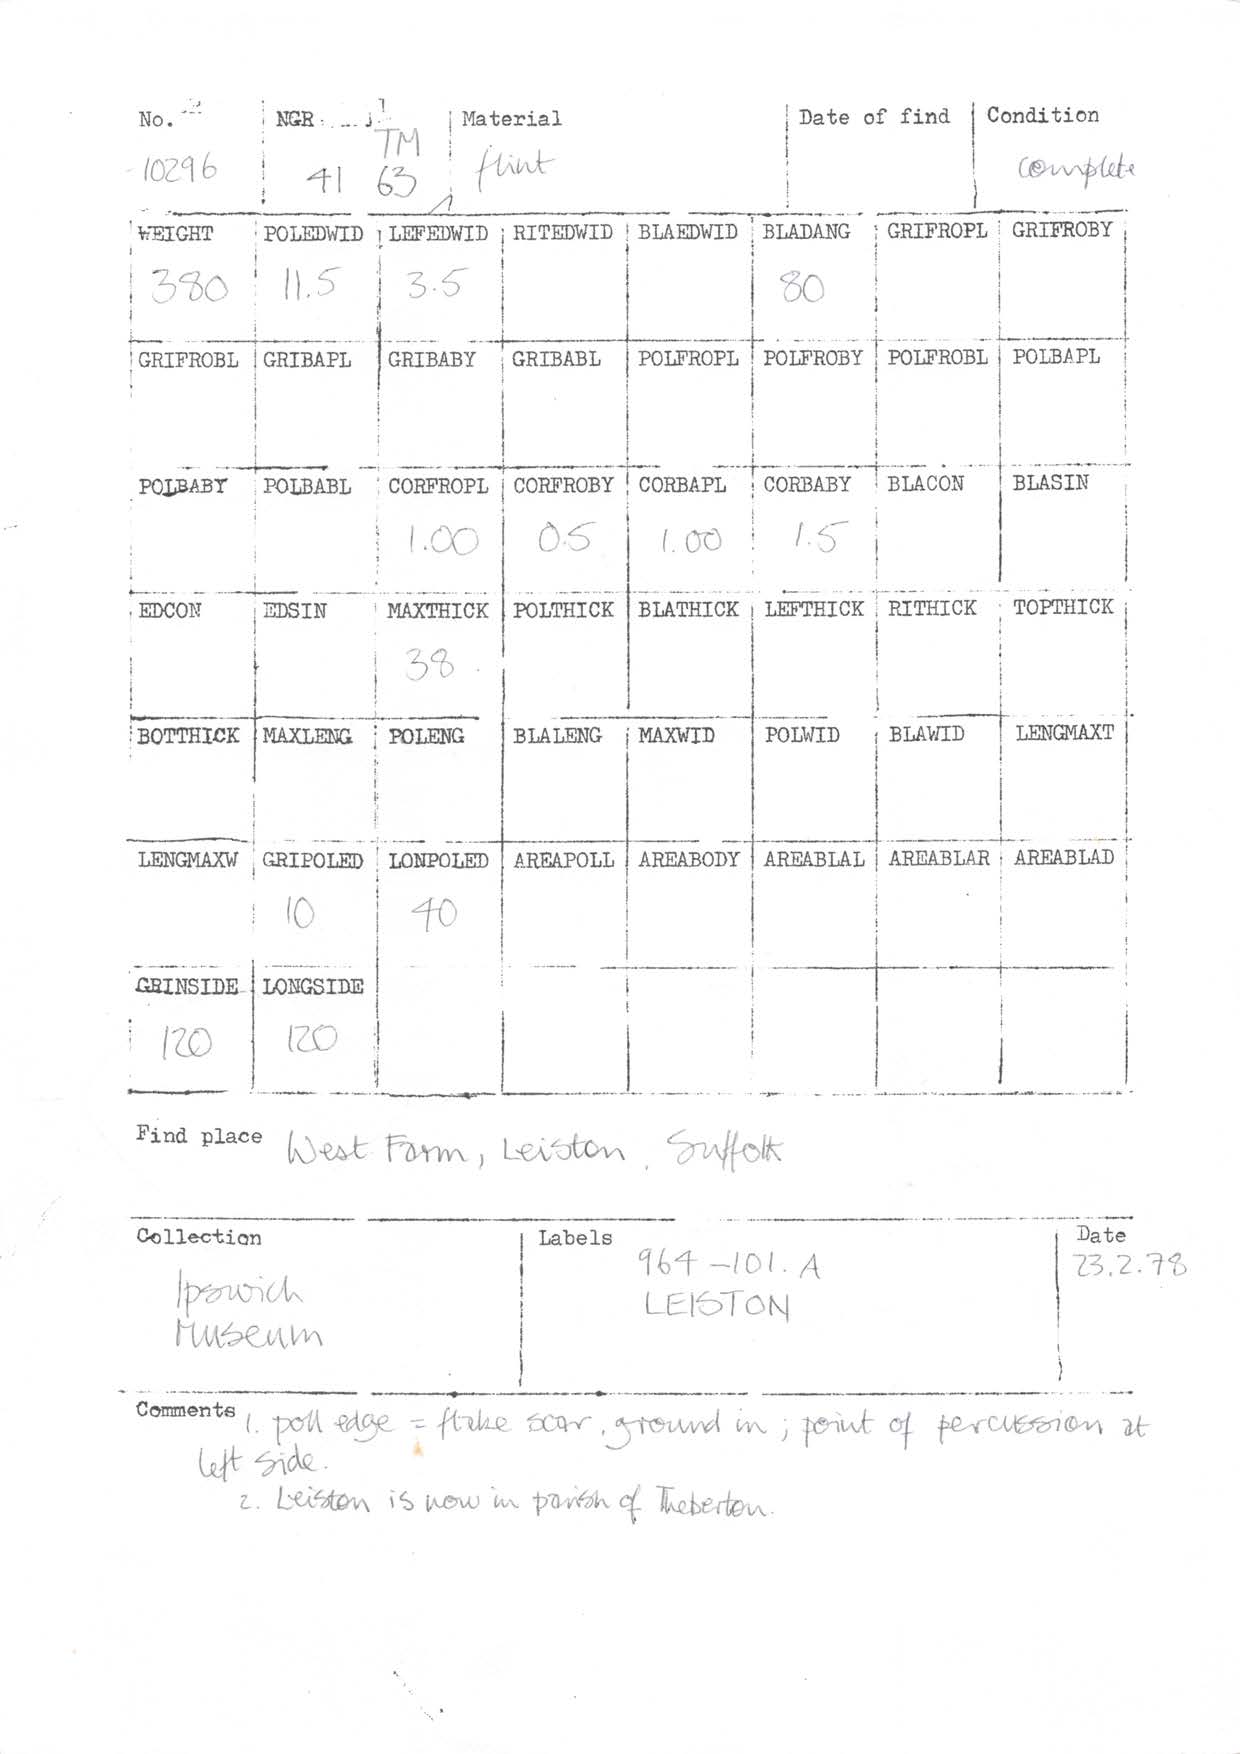 No. NGR Material Date of find Condition
TM
10296 41 63 flint complete
WEIGHT POLEDWID LEFEDWID RITEDWID BLAEDWID BLADANG GRIFROPL GRIFROBY
380 11.5 3.5 80
GRIFROBL GRIBAPL GRIBABY GRIBABL POLFROPL POLFROBY POLFROBL POLBAPL
POLBABY POLBABL CORFROPL CORFROBY CORBAPL CORBABY BLACON BLASIN
1.00 0.5 1.00 1.5
EDCON EDSIN MAXTHICK POLTHICK BLATHICK LEFTHICK RITHICK TOPTHICK
38
BOTTHICK MAXLENG POLENG BLALENG MAXWID POLWID BLAWID LENGMAXT
LENGMAXW GRIPOLED LONPOLED AREAPOLL AREABODY AREABLAL AREABLAR AREABLAD
10 40
GRINSIDE LONGSIDE
120 120
Find place West Farm, Leiston, Suffolk
Collection Labels Date
964-101.A 23.2.78
Ipswich LEISTON
Museum
Comments 1. poll edge = flake scar, ground in; point of percussion at
left side.
2. Leiston is now in parish of Theberton.